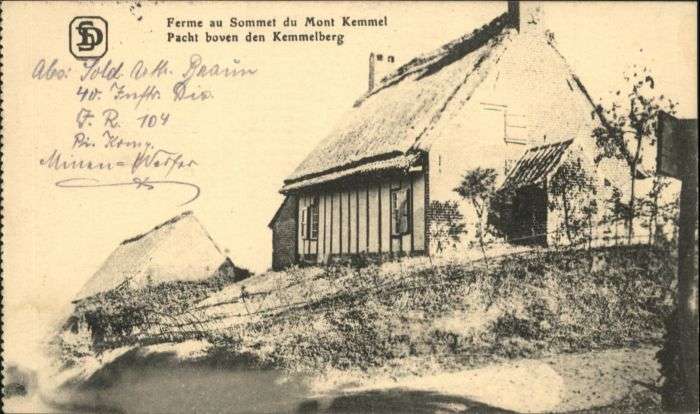 SD
Ferme au Sommet du Mont Kemmel
Pacht boven den Kemmelberg
Abs: Sold. Arth. Braun
40. Inftr. Div.
I. R. 104
Pi. Komp.
Minen=Werfer